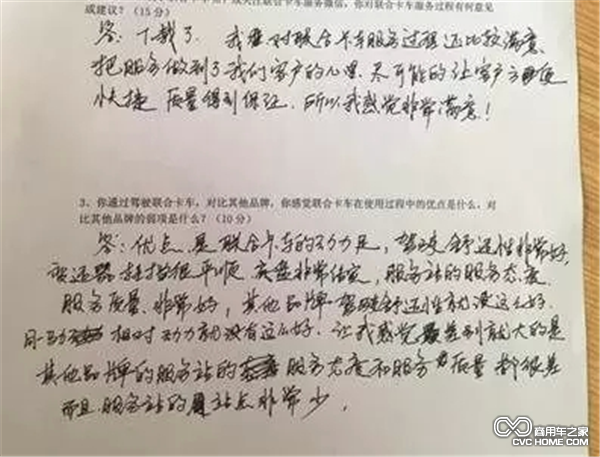 或建议？（15分）
答：下载了． 我是对联合卡车服务过程还比较满意．
把服务做到了我们客户的心里．尽可能的让客户方便
快捷 质量得到保证．所以我感觉非常满意！
3、你通过驾驶联合卡车，对比其他品牌，你感觉联合卡车在使用过程中的优点是什么，对
比其他品牌的弱项是什么？（10分）
答：优点 是联合卡车的动力足，驾驶舒适性非常好，
变速器 挂挡很平顺 底盘非常结实，服务站的服务态度．
服务质量．非常好，其他品牌 驾驶舒适性就没这么好．
相对动力就没有这么好．让我感觉 差别就大的是
其他品牌的服务站的 服务态度和服务 质量 都很差
而且 服务站的 站点 非常少．
商用车之家
CVC HOME.COM